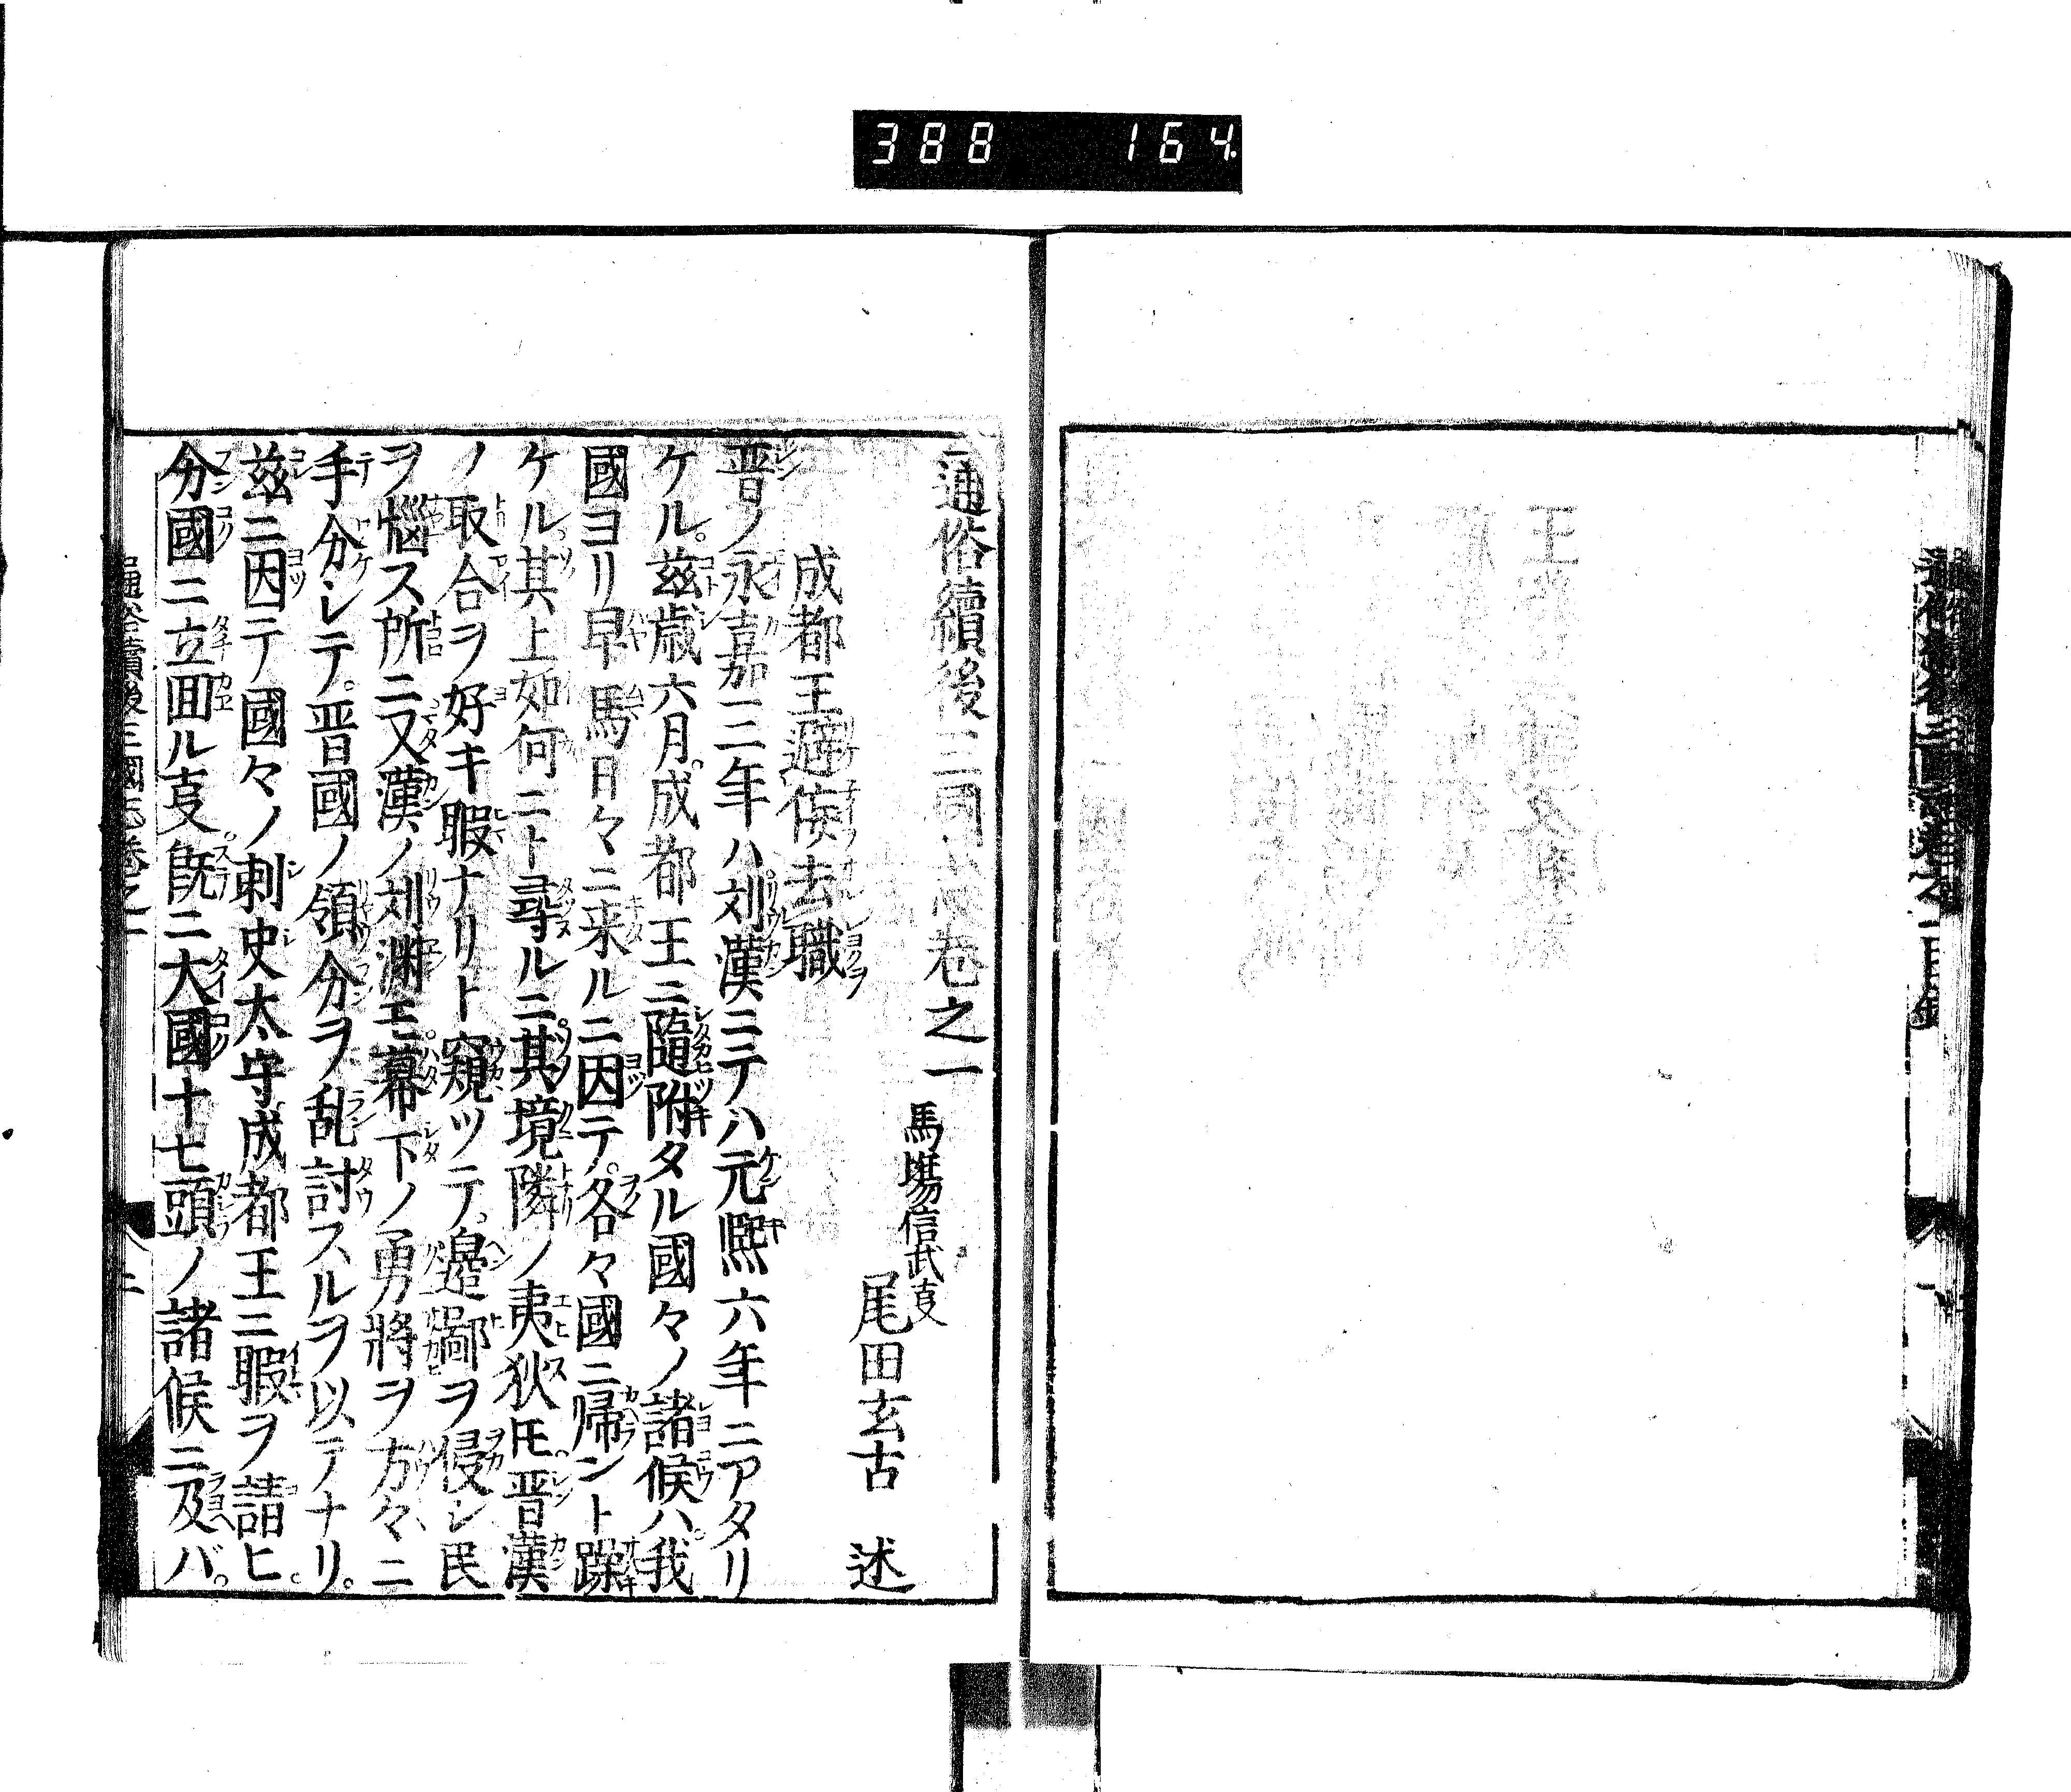 388 164
通俗續後三國志卷之一
馬塲信武叓
尾田玄古 述
成都王避侯去職
晋ノ永嘉三年ハ刘漢ニテハ元熙六年ニアタリ
ケル。茲歳六月。成都王ニ隨附タル國々ノ諸候ハ。我
國ヨリ早馬日々ニ来ルニ因テ。各々國ニ帰ント躁
ケル。其上如何ニト尋ルニ。其境隣ノ夷狄𪜈。晋漢
ノ取合ヲ好キ暇ナリト窺ツテ。邊鄙ヲ侵シ民
ヲ惱ス所ニ又漢ノ刘渊モ。幕下ノ勇將ヲ方々ニ
手分シテ。晋國ノ領分ヲ乱討スルヲ以テナリ。
茲ニ因テ國々ノ刺史太守成都王ニ暇ヲ請ヒ。
分國ニ立囬ル叓。既ニ大國十七頭ノ諸候ニ及バ。
通俗續後三國志卷之一 二